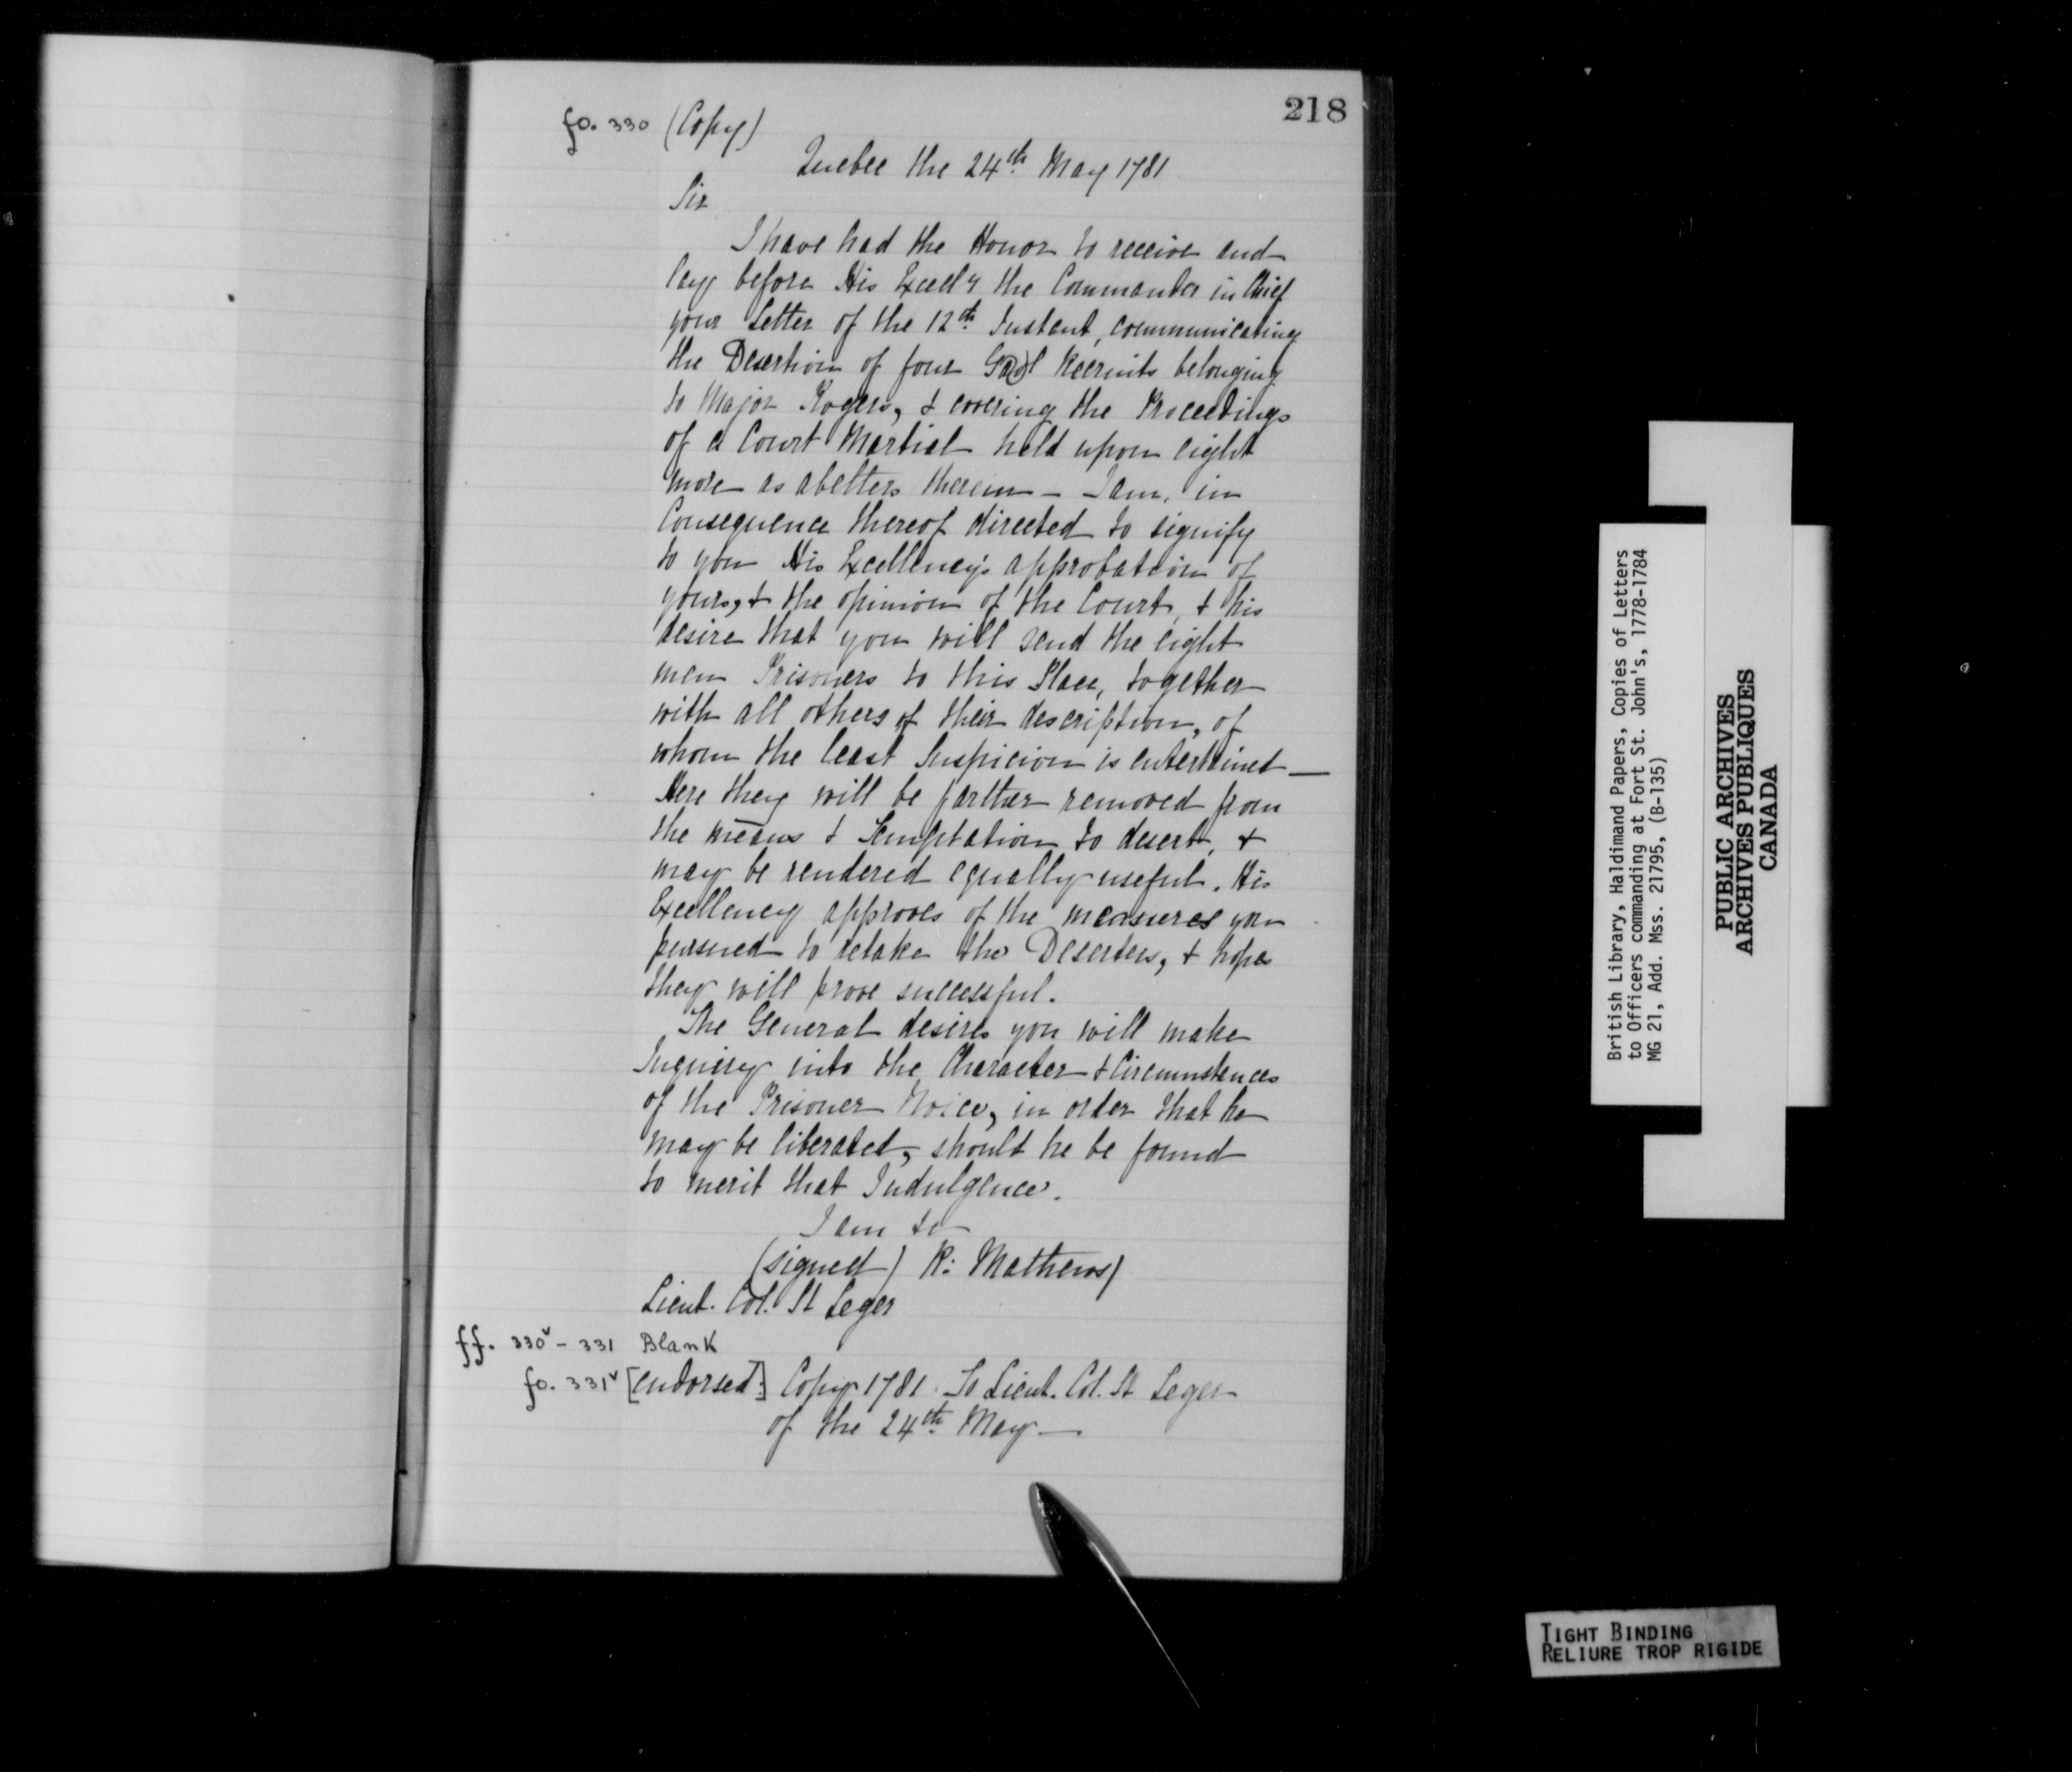 218
fo. 330 (Copy)
Quebec the 24th May 1781
Sir
I have had the Honor to receive and
lay before His Excel'y the Commander in Chief
your Letter of the 12th Instant, communicating
the Desertion of four Recruits belonging
to Major Rogers, & covering the Proceedings
of a Court Martial held upon eight
more as abettors therein – I am, in
Consequence thereof directed to signify
to you His Excellency's approbation of
yours, & the opinion of the Court, & his
desire that you will send the eight
men Prisoners to this Place, together
with all others of their description, of
whom the least Suspicion is entertained —
Here they will be farther removed from
the means & Temptation to desert, &
may be rendered equally useful. His
Excellency approves of the measures you
pursued to retake the Deserters, & hopes
they will prove successful.
The General desires you will make
Inquiry into the Character & Circumstances
of the Prisoner in order that he
may be liberated, should he be found
to merit that Indulgence.
I am &c
(signed) R: Mathews
Lieut. Col. St Leger
ff. 330v – 331 Blank
fo. 331v [endorsed.] Copy 1781. To Lieut. Col. St Leger
of the 24th May —
British Library, Haldimand Papers, Copies of Letters
to Officers commanding at Fort St. John's, 1778-1784
MG 21, Add. Mss. 21795, (B-135)
PUBLIC ARCHIVES
ARCHIVES PUBLIQUES
CANADA
TIGHT BINDING
RELIURE TROP RIGIDE